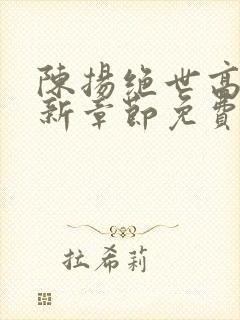 陳揚絕世高
新章節免費
拉希莉